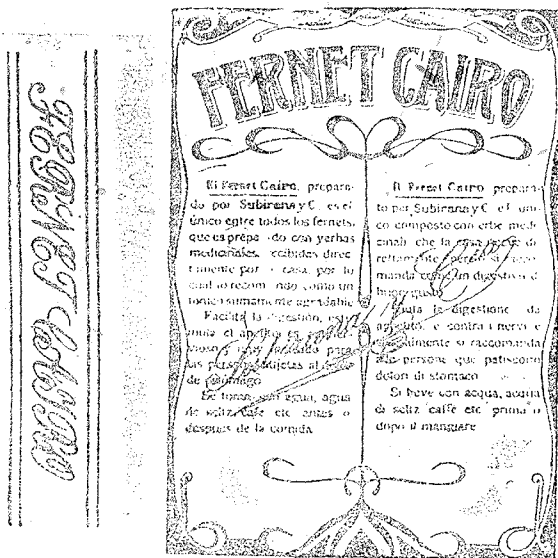 FERNET CAIRO
FERNET CAIRO
El Fernet Cairo, prepara-
do por Subirana y C. es el
único entre todos los fernets,
que es prepa do con yerbas
medicinales, recibidas direc
tamente por casa, por lo
cual lo recom ndo como un
tonico sumamente agradable
Facilita la digestión, esti
mula el apetito es
vioso y muy para
las personas sujetas al
de estómago
Se toma con agua, agua
de seltz, cafe etc antes o
despues de la comida
Il Fernet Cairo prepara-
to per Subirana y C. e l' uni
co composto con erbe medi
cinali che la casa riceve di
rettamente perciò si racco
manda come un digestivo di
buon gusto
Aiuta la digestione da
appetito, e contro i nervi e
si raccomanda
alle persone que patiscono
dolori di stomaco
Si beve con acqua, acqua
di seltz caffe etc prima o
dopo il mangiare